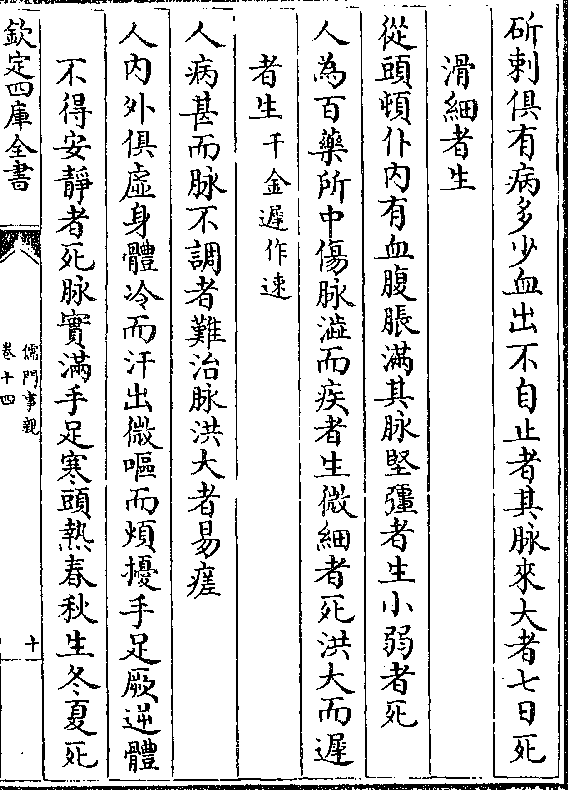 斫刺俱有病多少血出不自止者其脉來大者七日死
滑細者生
從頭頓仆内有血腹脹滿其脉堅彊者生小弱者死
人為百藥所中傷脉澁而疾者生微細者死洪大而遲
者生千金遲作速
人病甚而脉不調者難治脉洪大者易瘥
人内外俱虚身體冷而汗出微嘔而煩擾手足厥逆體
不得安靜者死脉實滿手足寒頭熱春秋生冬夏死
欽定四庫全書
儒門事親
卷十四
十